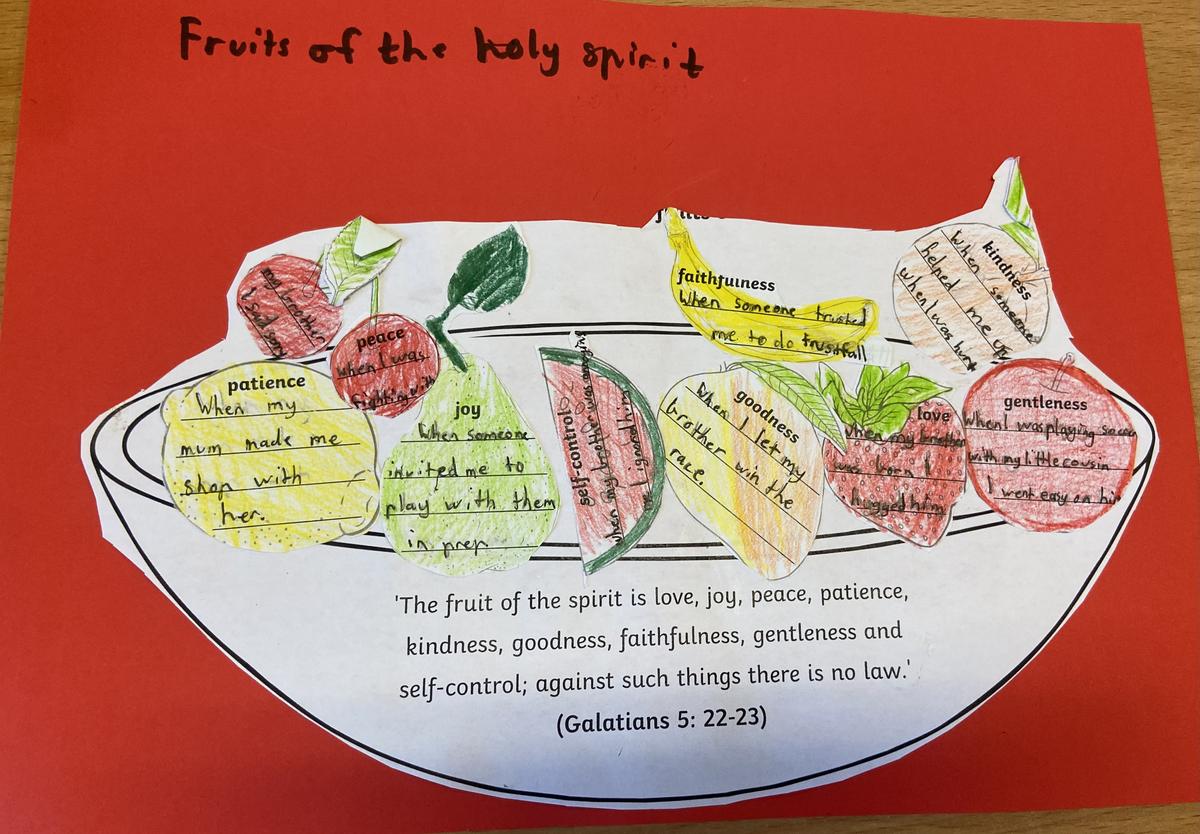 Fruits of the holy spirit
peace
when I was
fighting with
my brother
I said sorry
faithfulness
When someone trusted
me to do trustfall
kindness
When someone
helped me up
when I was hurt
patience
When my
mum made me
shop with
her.
joy
When someone
invited me to
play with them
in prep
self-control
when my brother was annoying
me I ignored him
goodness
When I let my
brother win the
race.
love
When my brother
was born I
hugged him
gentleness
when I was playing soccer
with my little cousin
I went easy on him
'The fruit of the spirit is love, joy, peace, patience,
kindness, goodness, faithfulness, gentleness and
self-control; against such things there is no law.'
(Galatians 5: 22-23)